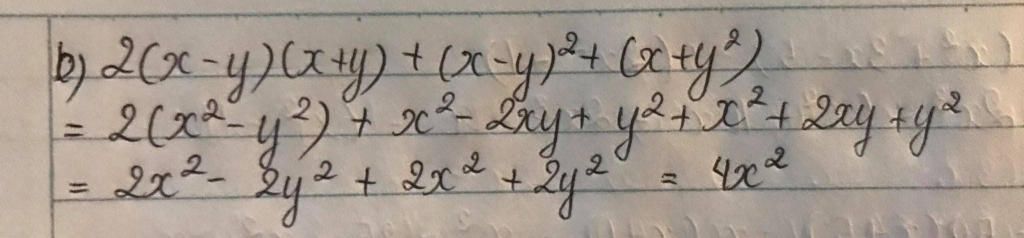 b) 2(x-y)(x+y) + (x-y)²+ (x+y²)
= 2(x²-y²) + x²- 2xy+ y²+ x²+ 2xy+y²
= 2x²- 2y² + 2x² + 2y² = 4x²